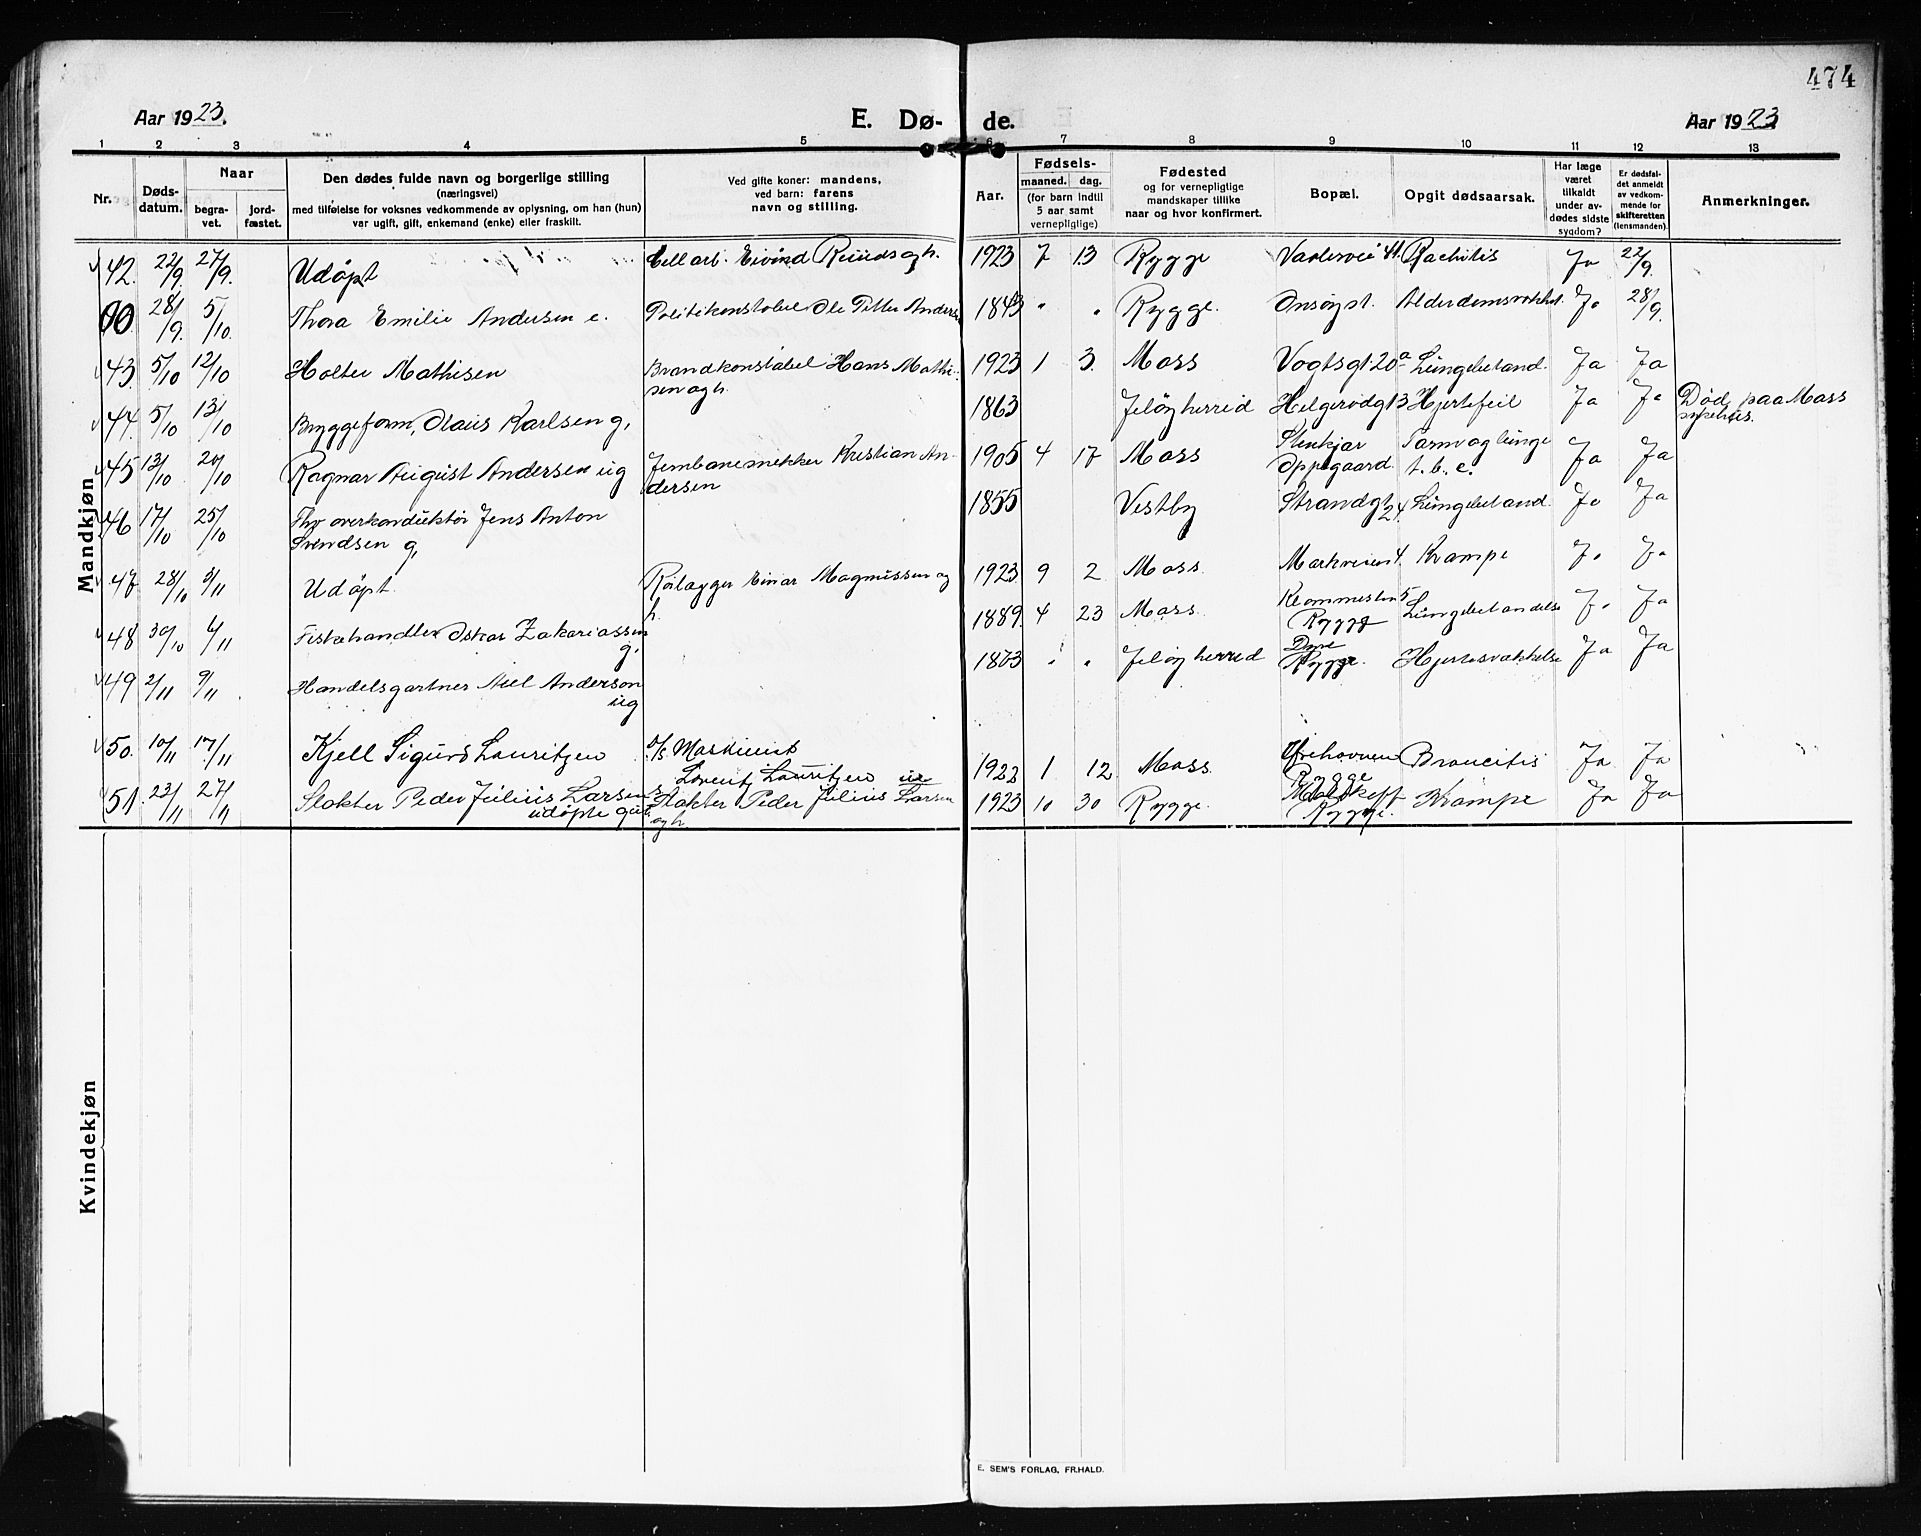 474
Aar 1923.
E. Dø-
de.
Aar 1923
1 2 3 4 5 6 7 8 9 10 11 12 13
Nr.
Døds-
datum.
Naar
begra-
vet.
jord-
fæstet.
Den dødes fulde navn og borgerlige stilling
(næringsvei)
med tilføielse for voksnes vedkommende av oplysning, om han (hun)
var ugift, gift, enkemand (enke) eller fraskilt.
Ved gifte koner: mandens,
ved barn: farens
navn og stilling.
Aar.
Fødsels-
maaned. dag.
(for barn indtil
5 aar samt
vernepligtige)
Fødested
og for vernepligtige
mandskaper tillike
naar og hvor konfirmert.
Bopæl.
Opgit dødsaarsak.
Har læge
været
tilkaldt
under av-
dødes sidste
sygdom?
Er dødsfal-
det anmeldt
av vedkom-
mende for
skifteretten
(lensmanden).
Anmerkninger.
Mandkjøn
42. 22/9. 27/9. Udöpt Cell arb. Eivind Ruud og h. 1923 7 13 Rygge Vaalervei 41. Rachitis Ja 22/9.
00 28/9. 5/10. Thora Emilie Andersen e. Politikonstabel Ole Petter Andersen 1843 " " Rygge. Onsöyst. Alderdomsvakhet. Ja 28/9.
43. 5/10 12/10 Holter Mathisen Brandkonstabel Hans Mathi-
sen og h. 1923 1 3. Moss Vogtsgt 20a Lungebetand. Ja Ja
44. 5/10 13/10 Bryggeform, Olaus Karlsen g, 1863 Jelöy herred Helgerödgt 3 Hjertefeil Ja Ja Död paa Moss
sykehus.
45 13/10 20/10 Ragnar August Andersen ug Jernbanesnekker Kristian An-
dersen 1905 4 17 Moss Stenkjær
Oppegaard Tarm og lunge
t. b. c. Ja Ja
46 17/10 25/10 Fhv overkonduktör Jens Anton
Svendsen g, 1855 Vestby Strandgt
24. Lungebetand. Ja Ja
47 28/10 3/11 Udöpt. Rörlægger Einar Magnussen og
h. 1923 9 2 Moss. Markveien 4. Krampe Ja Ja
48 30/10 6/11 Fiskehandler Oskar Zakariassen
g, 1889. 4 23 Moss. Rygge Lungebetandelse Ja Ja
49 2/11 9/11 Handelsgartner Axel Anderson
ug 1873 " " Jelöy herred Dyre
Rygge. Hjertesvækkelse Ja Ja
50. 10/11 17/11 Kjell Sigurd Lauritzen s/s Maskinist
Lorentz Lauritzen 1922 1 12 Moss.
Rygge Broncitis Ja Ja
51. 23/11 27/11 Slakter Peder Julius Larsens
udöpte gut. Slakter Peder Julius Larsen
og h. 1923 10 30 Rygge. Rygge. Krampe Ja Ja
Kvindekjøn
E. SEM'S FORLAG, FR.HALD.